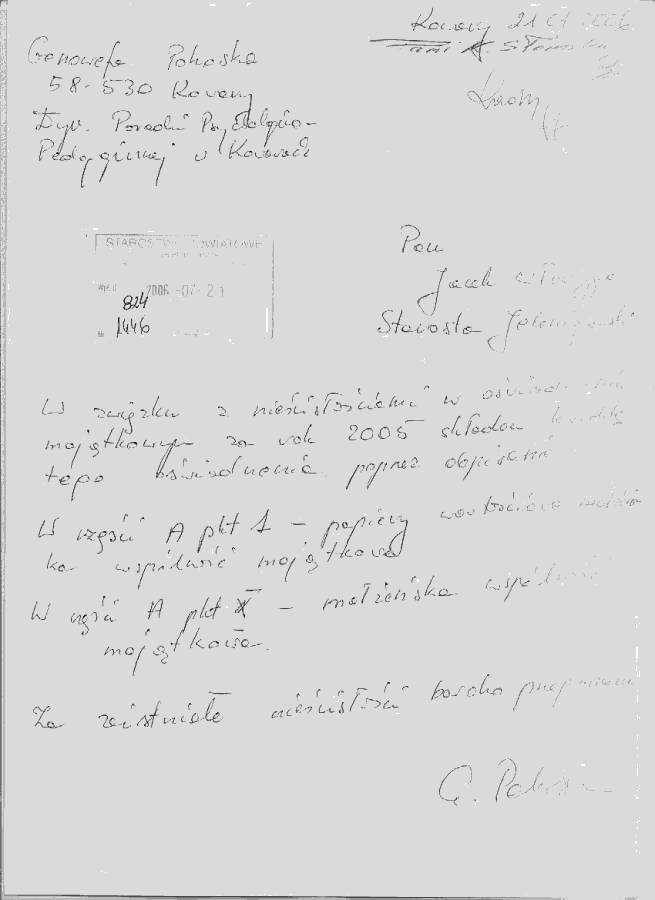 Kowary 21 07 2006
Genowefa Pokoska
58-530 Kowary
Dyr. Poradni Psychologiczno-
Pedagogicznej w Kowarach
STAROSTWO POWIATOWE
2006 -07- 21
824
1446
Pan
Jacek
Starosta Jeleniogórski
W związku z nieścisłościami w oświadczeniu
majątkowym za rok 2005 składam korektę
tego oświadczenia poprzez dopisanie
W części A pkt 1 - papiery wartościowe małżeńs
ka wspólność majątkowa
W części A pkt - małżeńska wspólność
majątkowa.
Za zaistniałe nieścisłości bardzo przepraszam
G. Pokoska